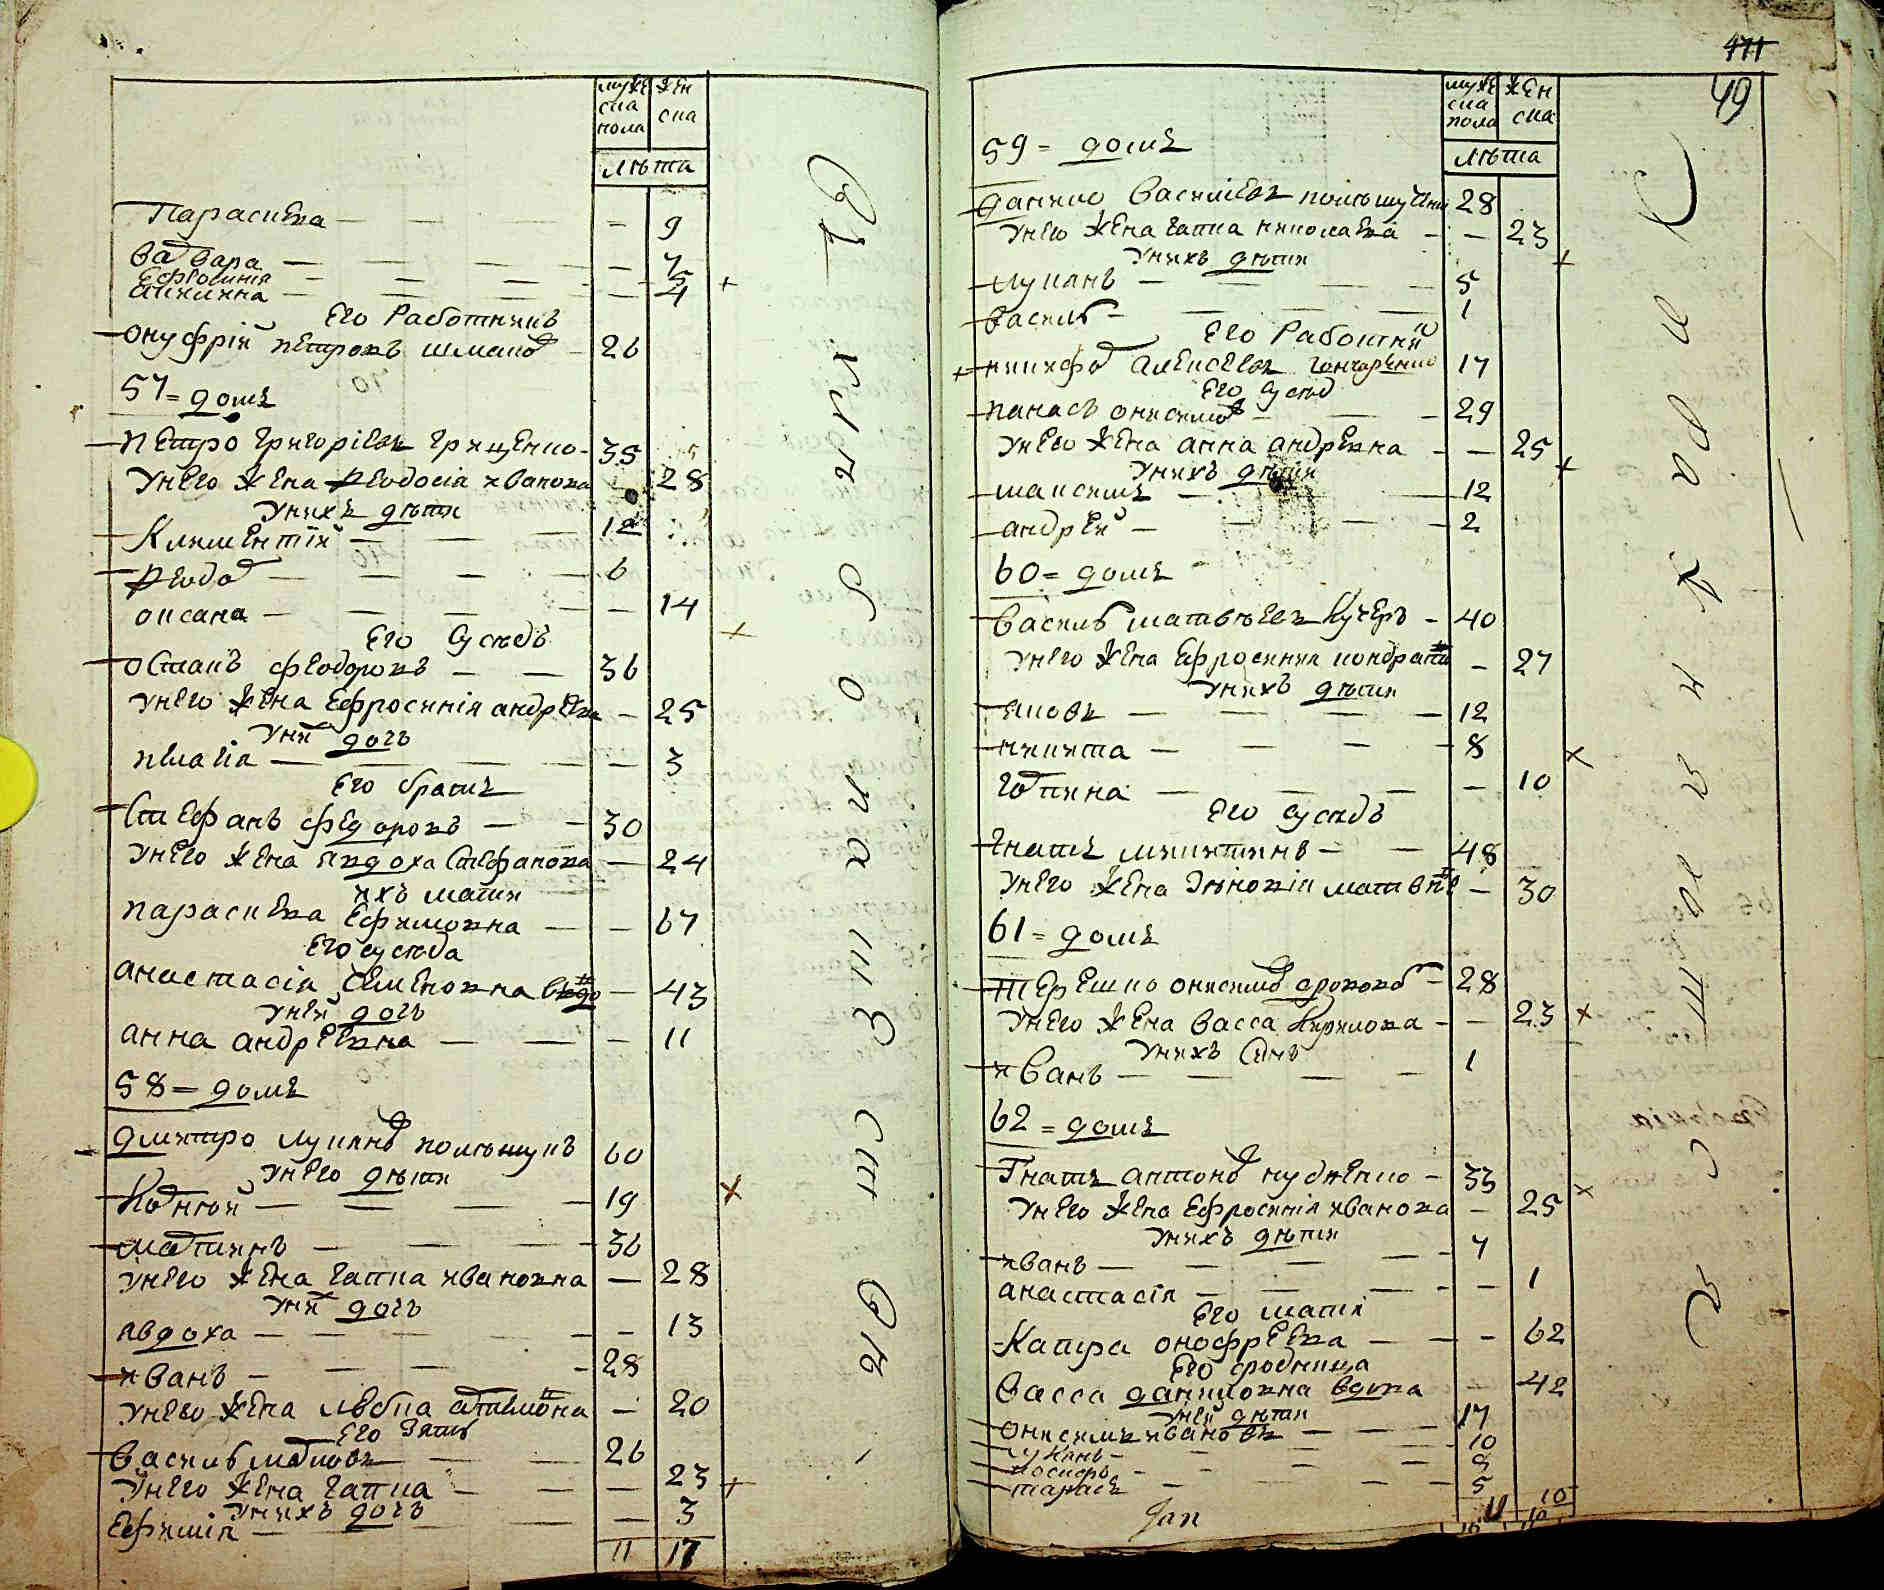 мужеска пола
женска
лѣта
Параскева — 9
Варвара — 7
Ефросинія — 5
Акилина — 4
Его Работникъ
Онуфрій петровъ 26
57 = домъ
Петро Григоріевъ Грищенко 35
У него жена Феодосія ивановна 28
У нихъ дѣти
Климентій — 12
Феодор — 6
Оксана — 14
Его Сусѣдъ
Остапъ Феодоровъ — 36
У него жена Ефросинія андреевна — 25
У них дочь
Его братъ
Стефанъ Федоровъ — 30
У него жена Явдоха Стефановна — 24
ихъ мати
Параскева Ефимовна — 67
Его сусѣда
Анастасія Семеновна вдова — 43
У ней дочь
Анна андреевна — 11
58 = домъ
Дмитро Лукянов полѣшукъ 60
У него дѣти
Корнѣй — 19
Мартинъ — 36
У него жена Гапка ивановна — 28
У них дочь
Явдоха — 13
Иванъ — 28
У него жена 20
Его Зять
Василь Марковъ 26
У него жена Гапка — 23
У нихъ дочь
Ефимія — 3
11 17
471
49
мужеска пола
женска
лѣта
59 = домъ
Данило Василіевъ полѣшученко 28
У него жена Гапка николаевна — 23
У нихъ дѣти
Лукянъ — 5
Василь — 1
Его Работник
Никифор Алексеевъ Гончаренко 17
Его Сусѣд
Панасъ онисимов — 29
У него жена анна андреевна — 25
У нихъ дѣти
Максимъ — 12
Андрей — 2
60 = домъ
Василь матвѣевъ Кучеръ — 40
У него жена Ефросиния 27
У нихъ дѣти
Яковъ — 12
Никита — 8
Горпина — 10
Его Сусѣдъ
Гнатъ микитинъ — 48
У него жена 30
61 = домъ
Терешко онисимов 28
У него жена Васса Кириловна — 23
У нихъ Синъ
Иванъ — 1
62 = домъ
Гнатъ антонов 33
У него жена Ефросинія ивановна — 25
У нихъ дѣти
Иванъ — 7
Анастасія — 1
Его мати
Каптра онофреевна — 62
Его сродница
Васса даниловна вдова — 42
У ней дѣти
Онисимъ ивановъ — 17
Лукянъ — 10
Иосифъ — 9
Тарасъ — 5
10